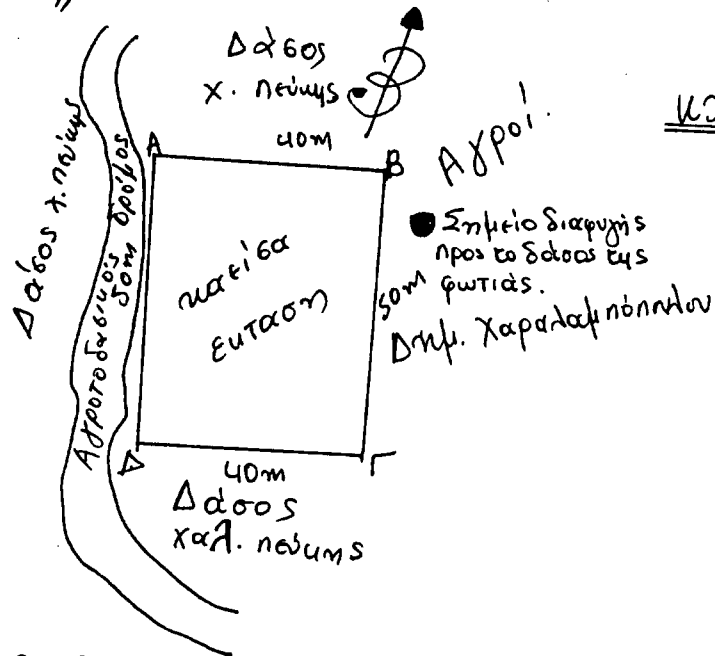 Δάσος
χ. πεύκης
40m
Α
Β
Αγροί.
Δάσος χ. πεύκης
Αγροτοδασικός δρόμος
50m
καείσα
έκταση
50m
Σημείο διαφυγής
προς το δάσος της
φωτιάς.
Δημ. Χαραλαμπόπουλου
Δ
40m
Γ
Δάσος
χαλ. πεύκης